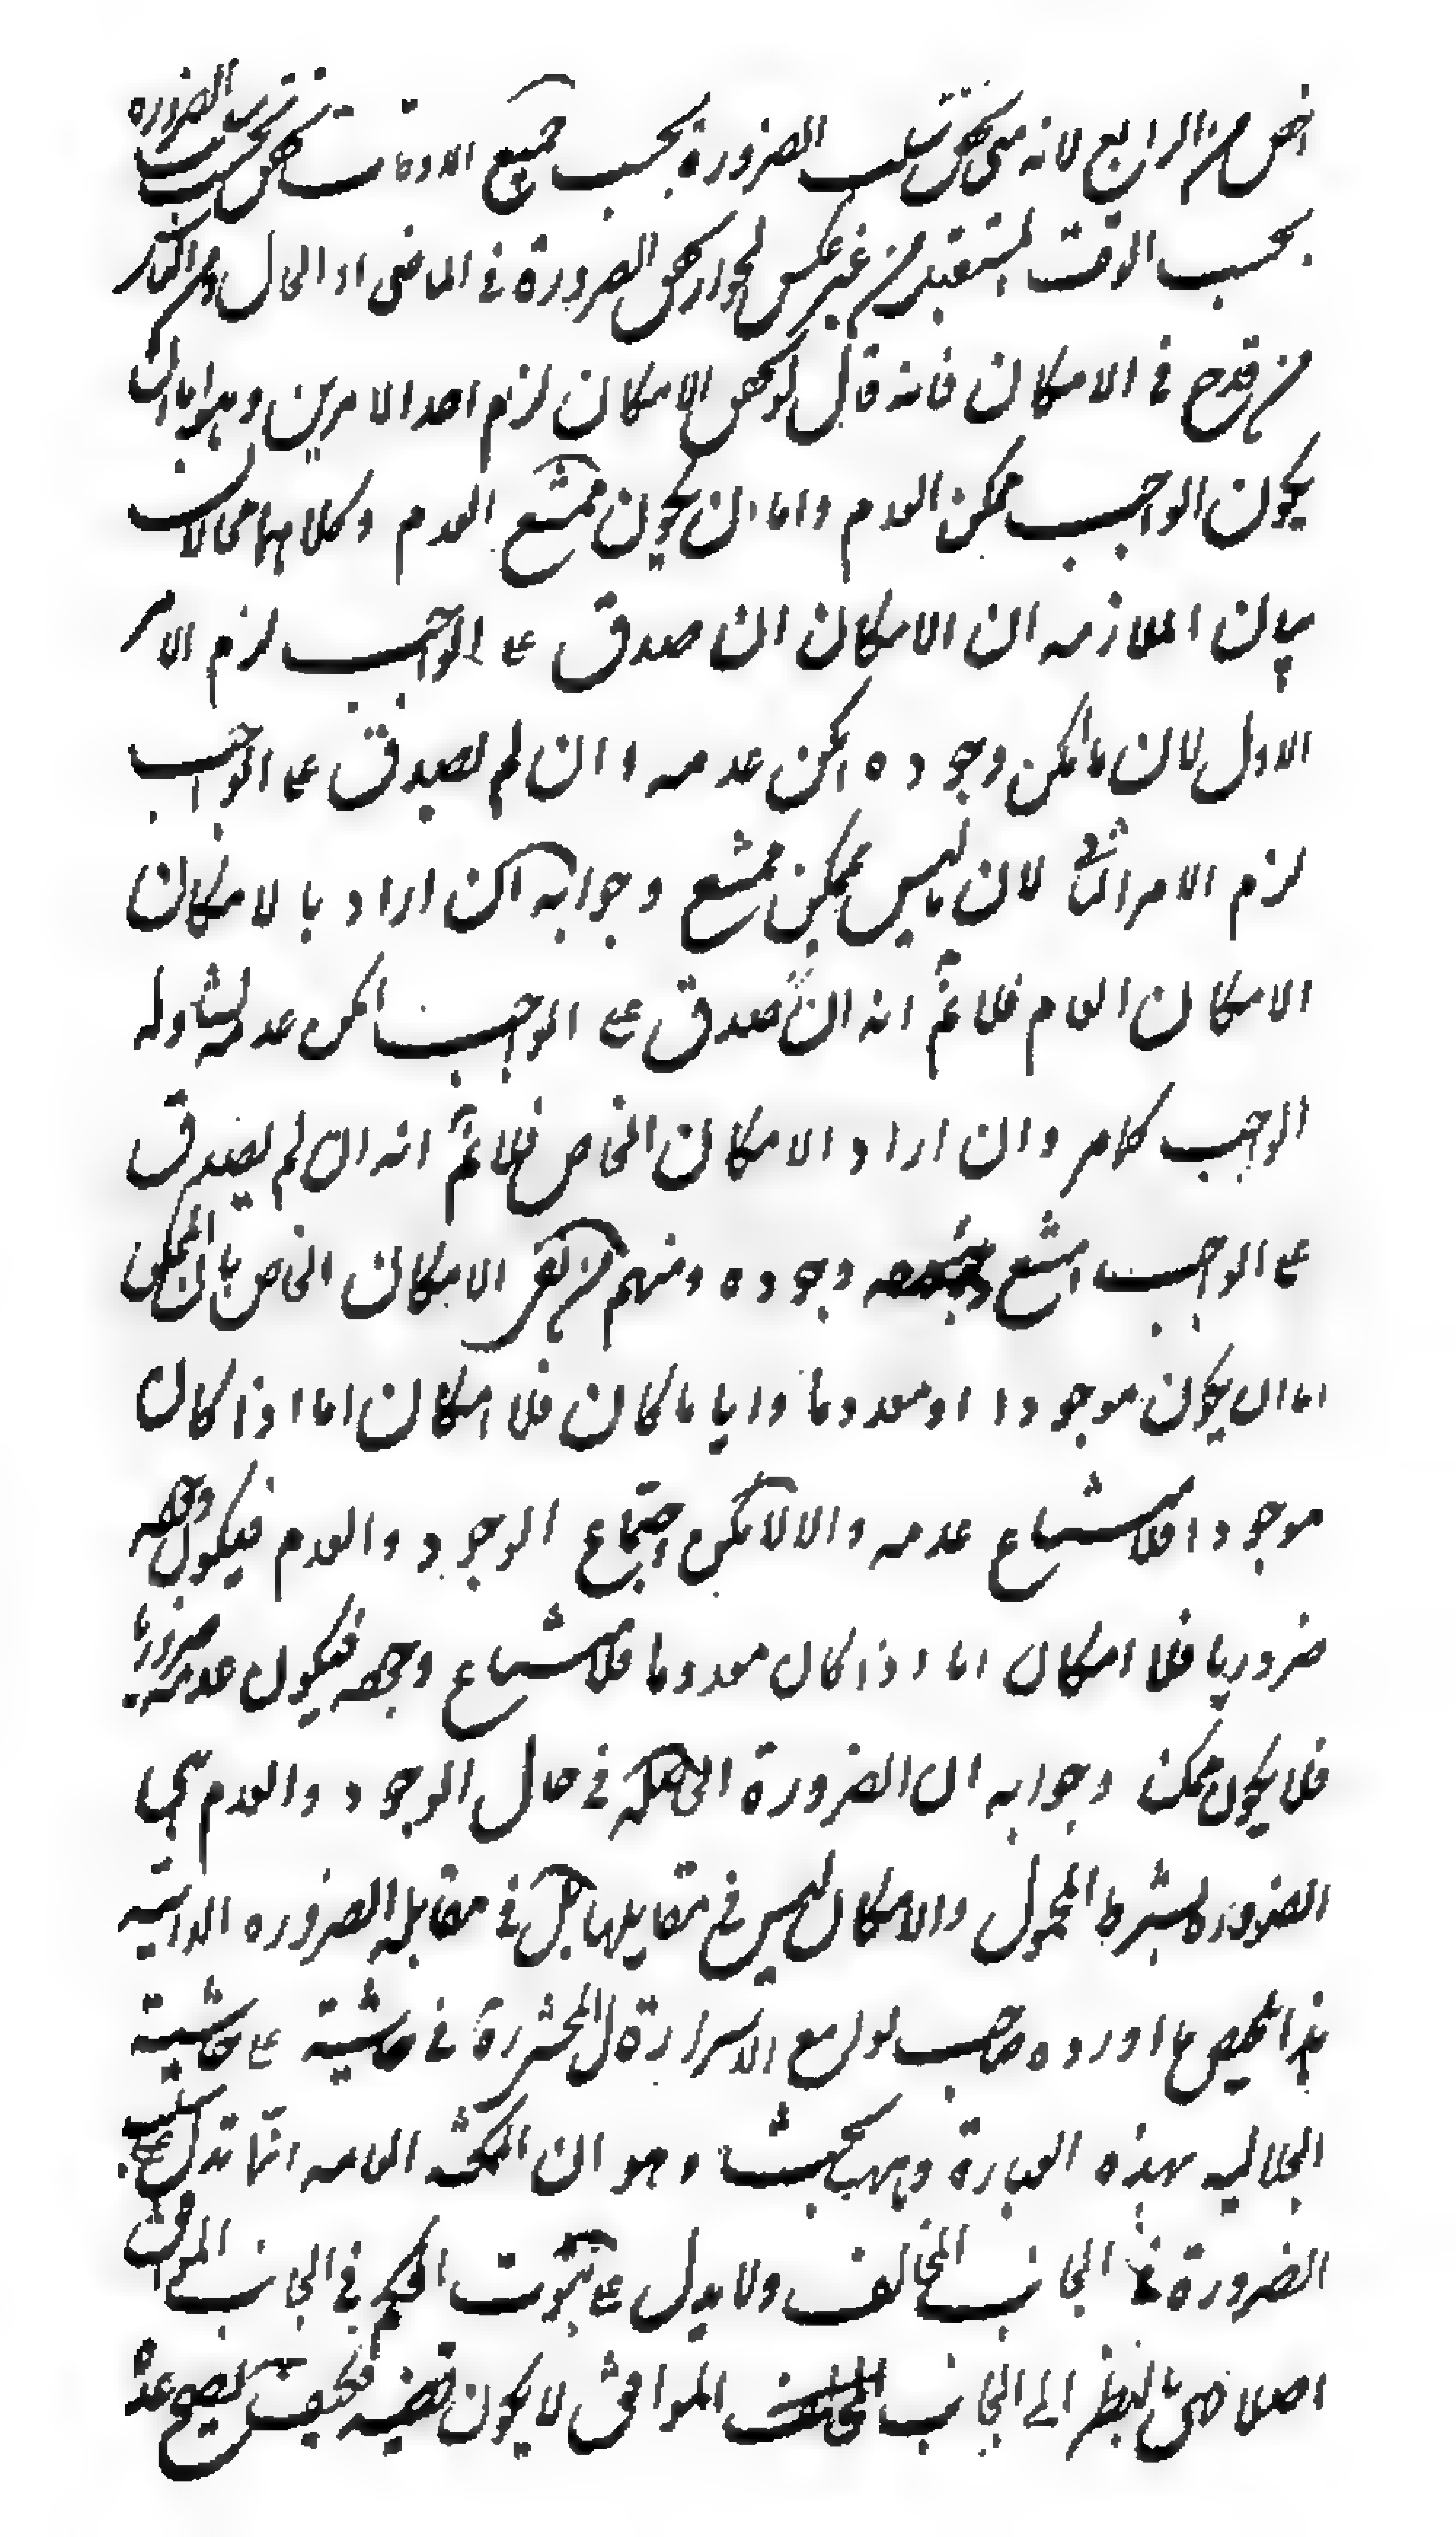 اخص من الرابع لانه متى تحقق سلب الضرورة بحسب جميع الاوقات تحقق سلب الضرورة
بحسب الوقت المستقبل من غير عكس لجواز تحقق الضرورة في الماضي او الحال ومن الناس
من قدح في الامكان فانه قال لو تحقق الامكان لزم احد الامرين وهو اما ان
يكون الواجب ممكن العدم واما ان يكون ممتنع العدم وكلاهما محالان
بيان الملازمه ان الامكان ان صدق على الواجب لزم الامر
الاول لان ما امكن وجوده امكن عدمه وان لم يصدق على الواجب
لزم الامر الثاني لان ما ليس بممكن ممتنع وجوابه ان اراد بالامكان
الامكان العام فلا نم انه ان صدق على الواجب امكن عدمه لتناوله
الواجب كما مر وان اراد الامكان الخاص فلا نم انه ان لم يصدق
على الواجب امتنع وجوده ومنهم من نفى الامكان الخاص بان الممكن
اما ان يكون موجودا او معدوما وايا ما كان فلا امكان اما اذا كان
موجودا فلامتناع عدمه والا لامكن اجتماع الوجود والعدم فيكون وجوده
ضروريا فلا امكان اما اذا كان معدوما فلامتناع وجوده فيكون عدمه ضروريا
فلا يكون ممكنا وجوابه ان الضرورة الحاصلة في حال الوجود والعدم هي
الضرورة بشرط المحمول والامكان ليس في مقابلها بل في مقابلة الضروره الذاتيه
هذا تلخيص ما اورده صاحب لوامع الاسرار قال المحشي رة في حاشية على حاشية
الجلاليه بهذه العبارة وههنا بحث وهو ان الممكنة العامه انما تدل على سلب
الضرورة في الجانب المخالف ولا يدل على ثبوت الحكم في الجانب الموافق
اصلا حتى بالنظر الى الجانب الموافق لا يكون قضيه فكيف يصح عد